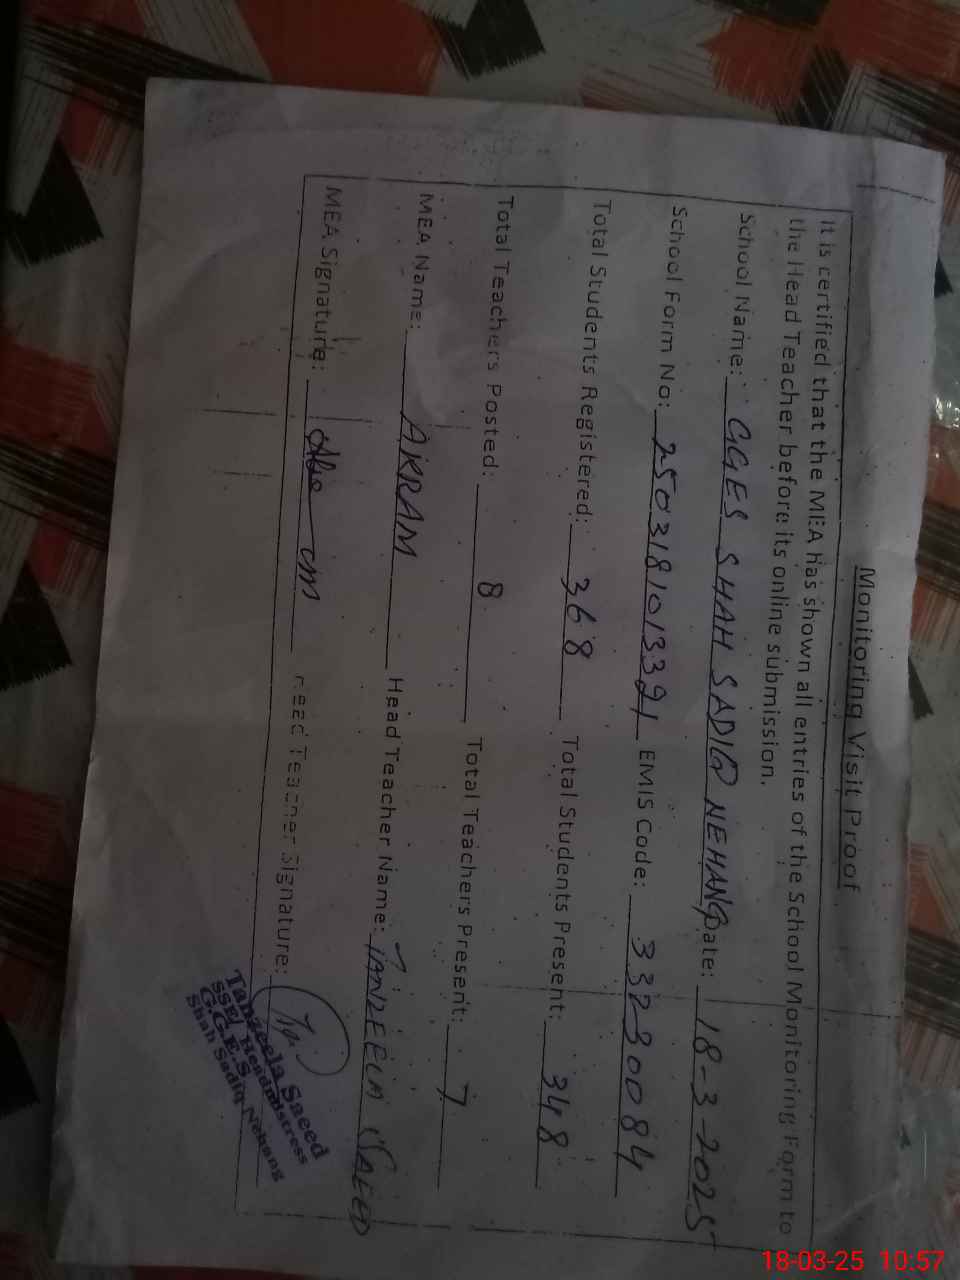 Monitoring Visit Proof
It is certified that the MEA has shown all entries of the School Monitoring Form to
the Head Teacher before its online submission.
School Name: GGES SHAH SADIQ NEHANG Date: 18-3-2025
School Form No: 25031810133 EMIS Code: 33230084
Total Students Registered: 368 Total Students Present: 348
Total Teachers Posted: 8 Total Teachers Present: 7
MEA Name: AKRAM Head Teacher Name: TANZEELA SAEED
MEA Signature: Head Teacher Signature:
Tanzeela Saeed
SSE, Headmistress
G.G.E.S
Shah Sadiq Nehang
18-03-25 10:57